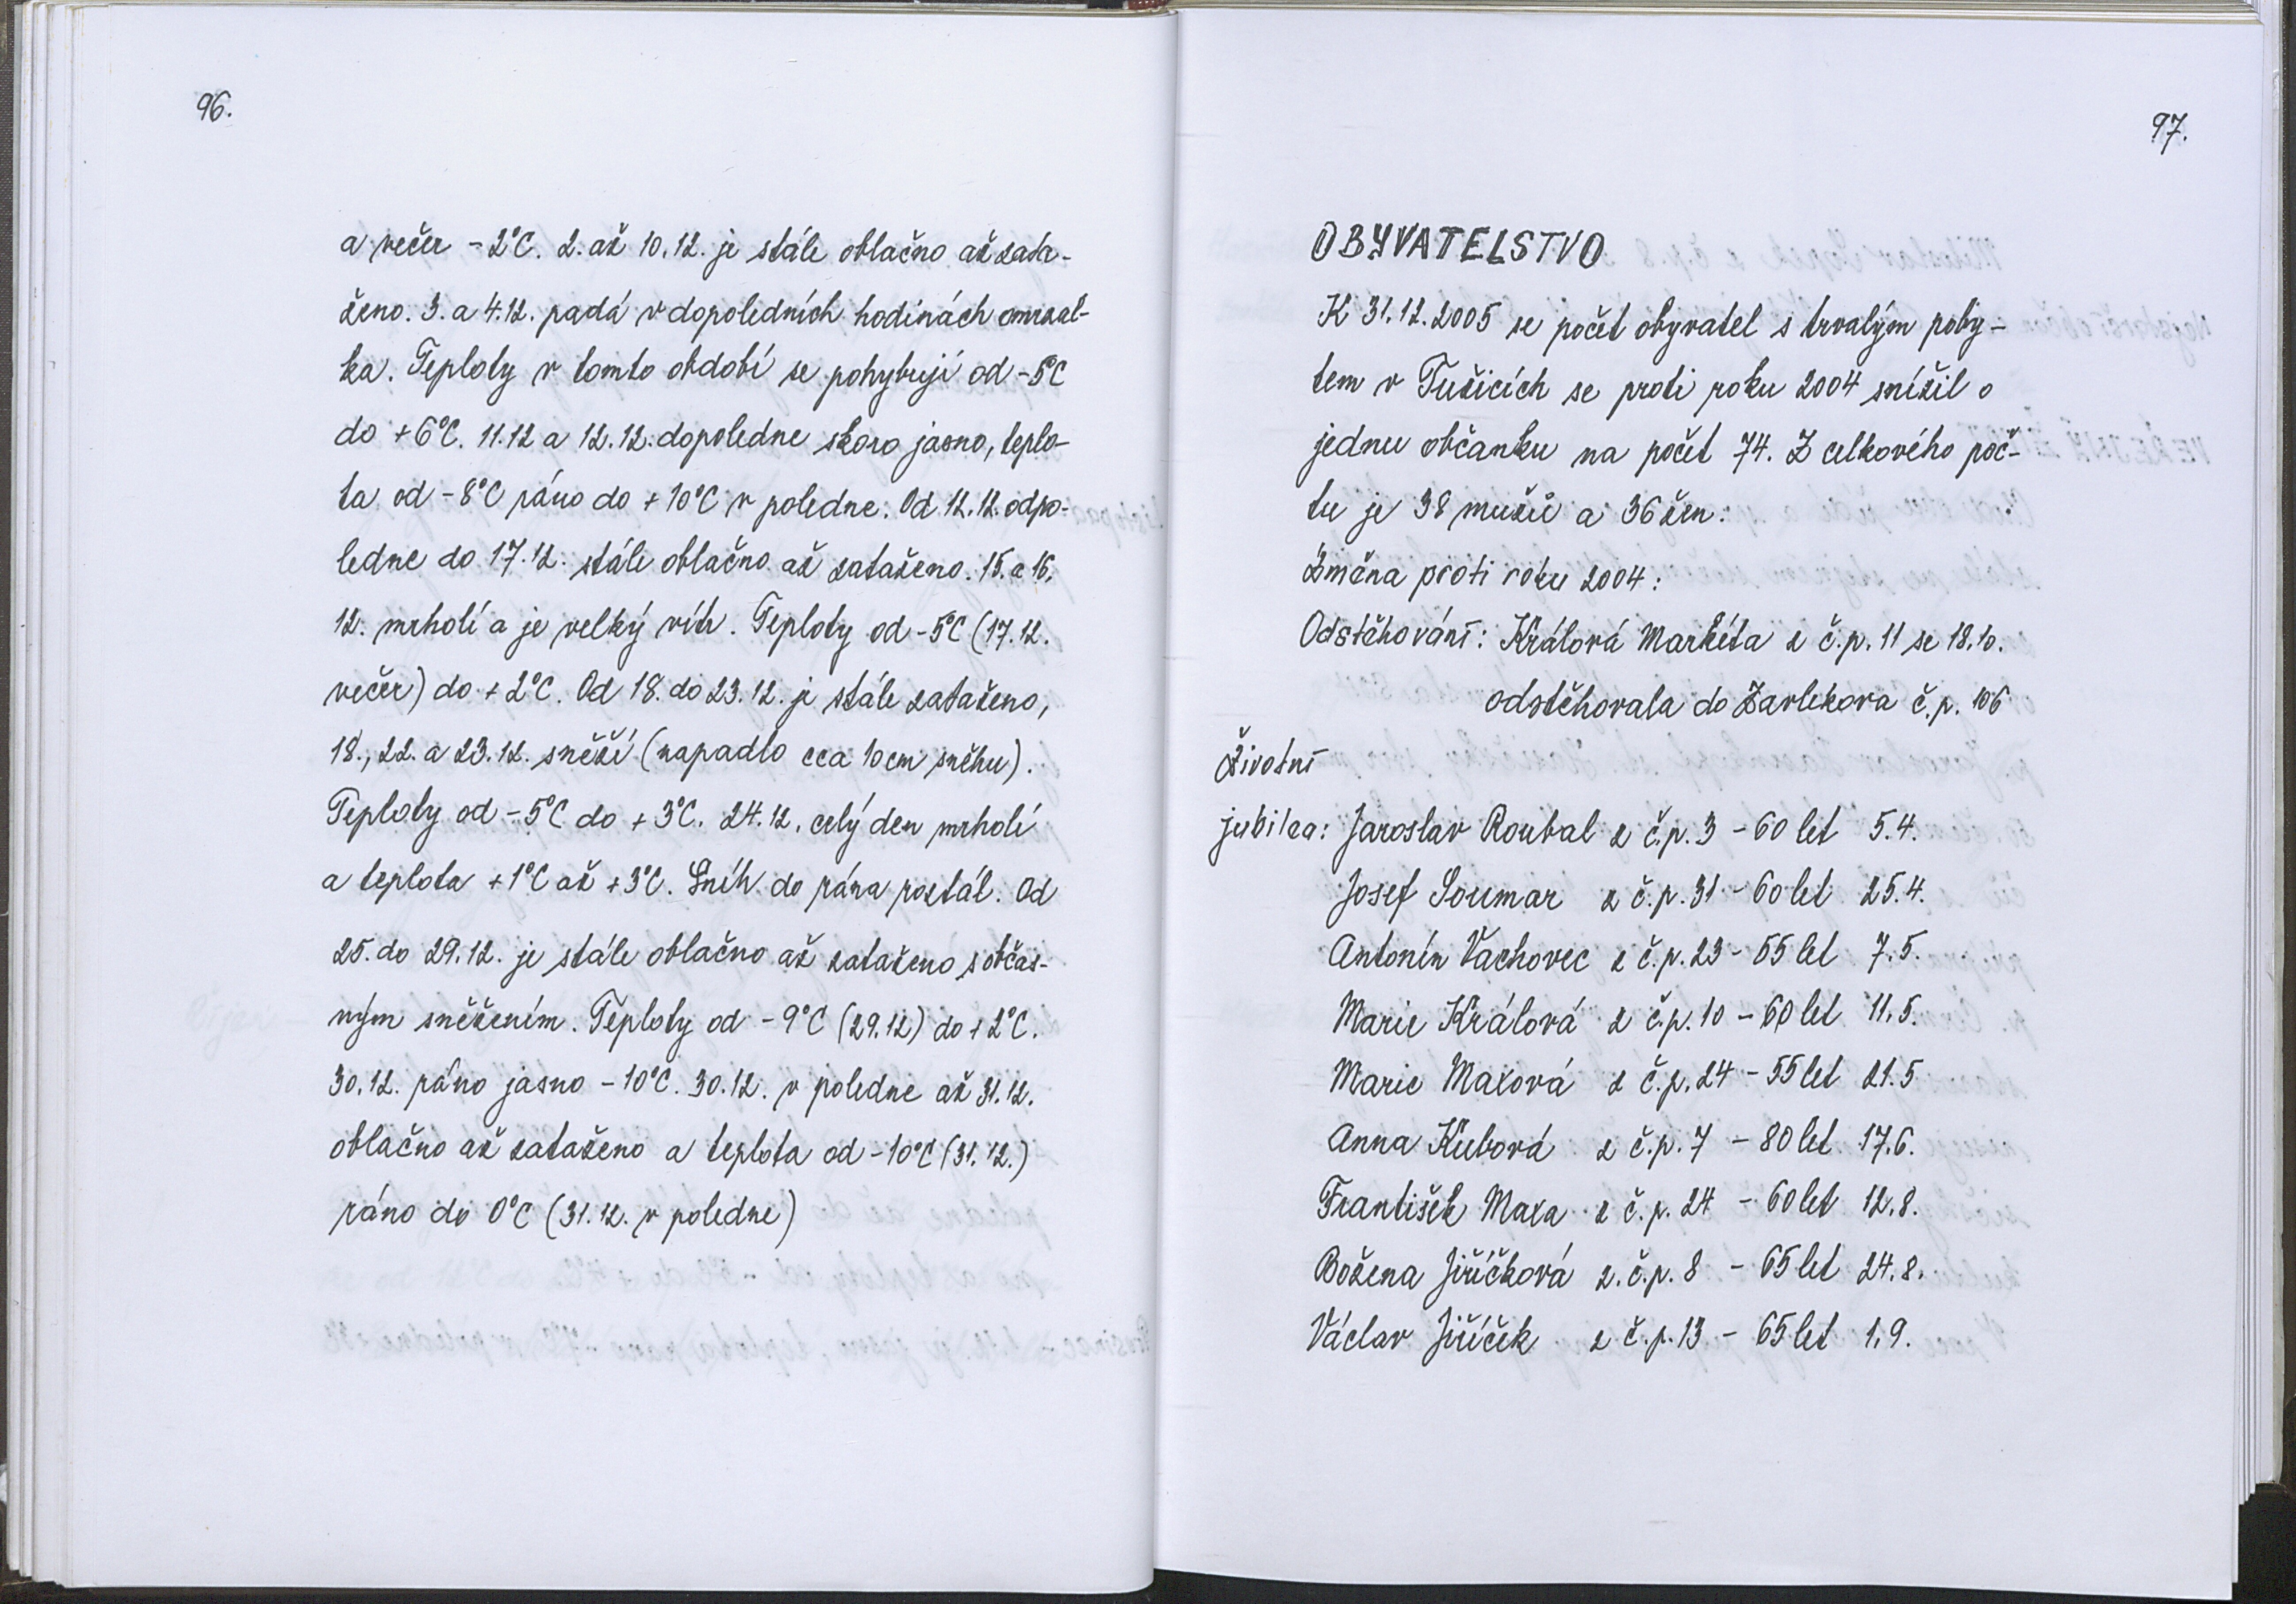 96.
a večer -2°C. 2. až 10.12. je stále oblačno až zata-
ženo. 3. a 4.12. padá v dopoledních hodinách omrzal-
ka. Teploty v tomto období se pohybují od -5°C
do +6°C. 11.12 a 12.12. dopoledne skoro jasno, teplo-
ta od -8°C ráno do +10°C v poledne. Od 12.12. odpo-
ledne do 17.12. stále oblačno až zataženo. 15. a 16.
12. mrholí a je velký vítr. Teploty od -5°C (17.12.
večer) do +2°C. Od 18. do 23.12. je stále zataženo,
18., 22. a 23.12. sněží (napadlo cca 10cm sněhu).
Teploty od -5°C do +3°C. 24.12. celý den mrholí
a teplota +1°C až +3°C. Sníh do rána roztál. Od
25. do 29.12. je stále oblačno až zataženo s občas-
ným sněžením. Teploty od -9°C (29.12) do +2°C.
30.12. ráno jasno -10°C. 30.12. v poledne až 31.12.
oblačno až zataženo a teplota od -10°C (31.12.)
ráno do 0°C (31.12. v poledne)
97.
OBYVATELSTVO
K 31.12.2005 se počet obyvatel s trvalým poby-
tem v Tužicích se proti roku 2004 snížil o
jednu občanku na počet 74. Z celkového poč-
tu je 38 mužů a 36 žen.
Změna proti roku 2004:
Odstěhování: Králová Markéta z č.p. 11 se 18.10.
odstěhovala do Zavlekova č.p. 106
Životní
jubilea: Jaroslav Roubal z č.p. 3 - 60 let 5.4.
Josef Soumar z č.p. 31 - 60 let 25.4.
Antonín Vachovec z č.p. 23 - 55 let 7.5.
Marie Králová z č.p. 10 - 60 let 11.5.
Marie Maxová z č.p. 24 - 55 let 21.5
Anna Kubová z č.p. 7 - 80 let 17.6.
František Maxa z č.p. 24 - 60 let 12.8.
Božena Jiříčková z.č.p. 8 - 65 let 24.8.
Václav Jiříček z č.p. 13 - 65 let 1.9.